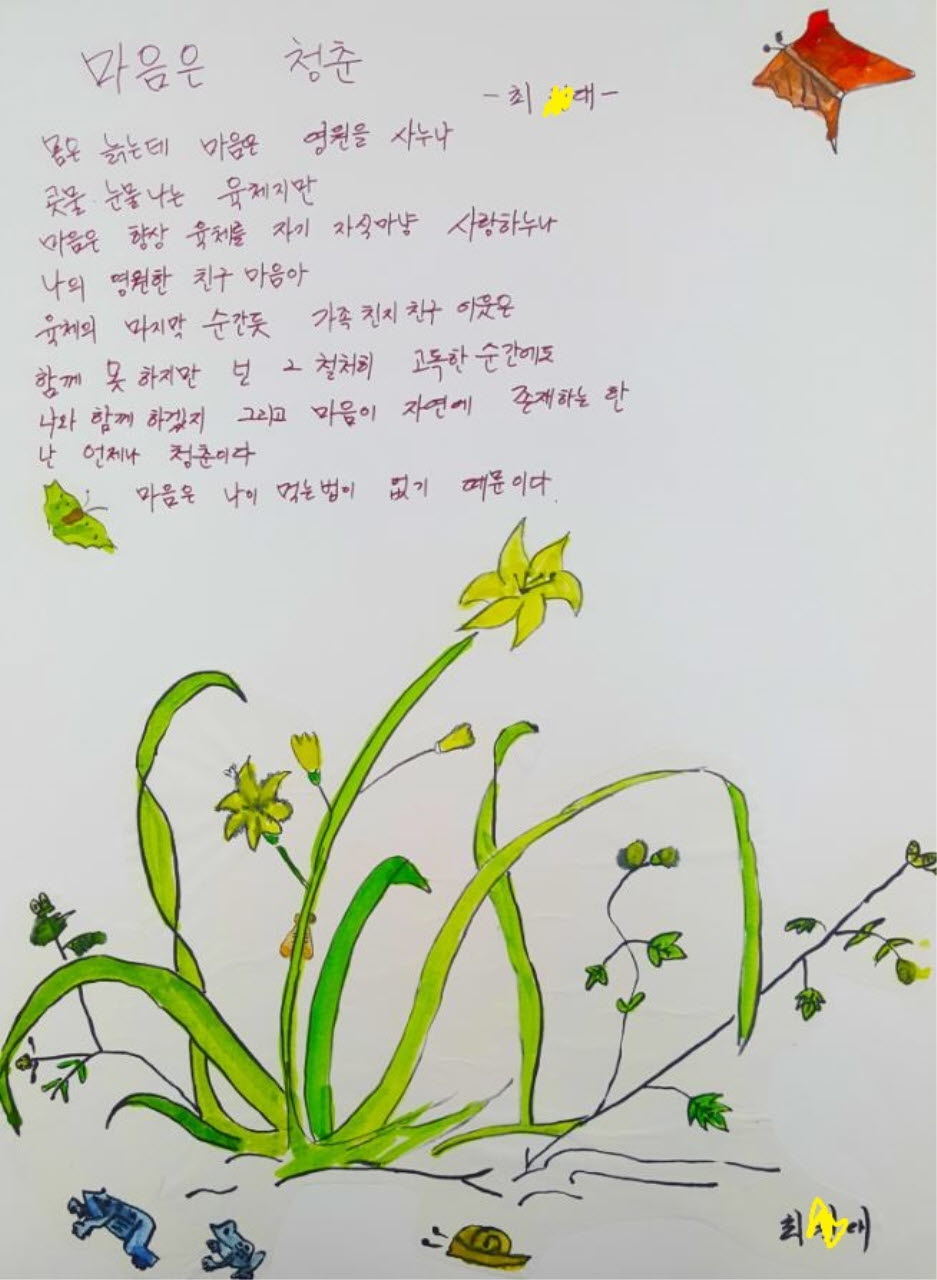 마음은 청춘
- 최 대 -
몸은 늙는데 마음은 영원을 사누나
콧물 눈물 나는 육체지만
마음은 항상 육체를 자기 자식마냥 사랑하누나
나의 영원한 친구 마음아
육체의 마지막 순간듯 가족 친지 친구 이웃은
함께 못 하지만 넌 그 철저히 고독한 순간에도
나와 함께 하겠지 그리고 마음이 자연에 존재하는 한
난 언제나 청춘이다
마음은 나이 먹는법이 없기 때문이다.
최 대